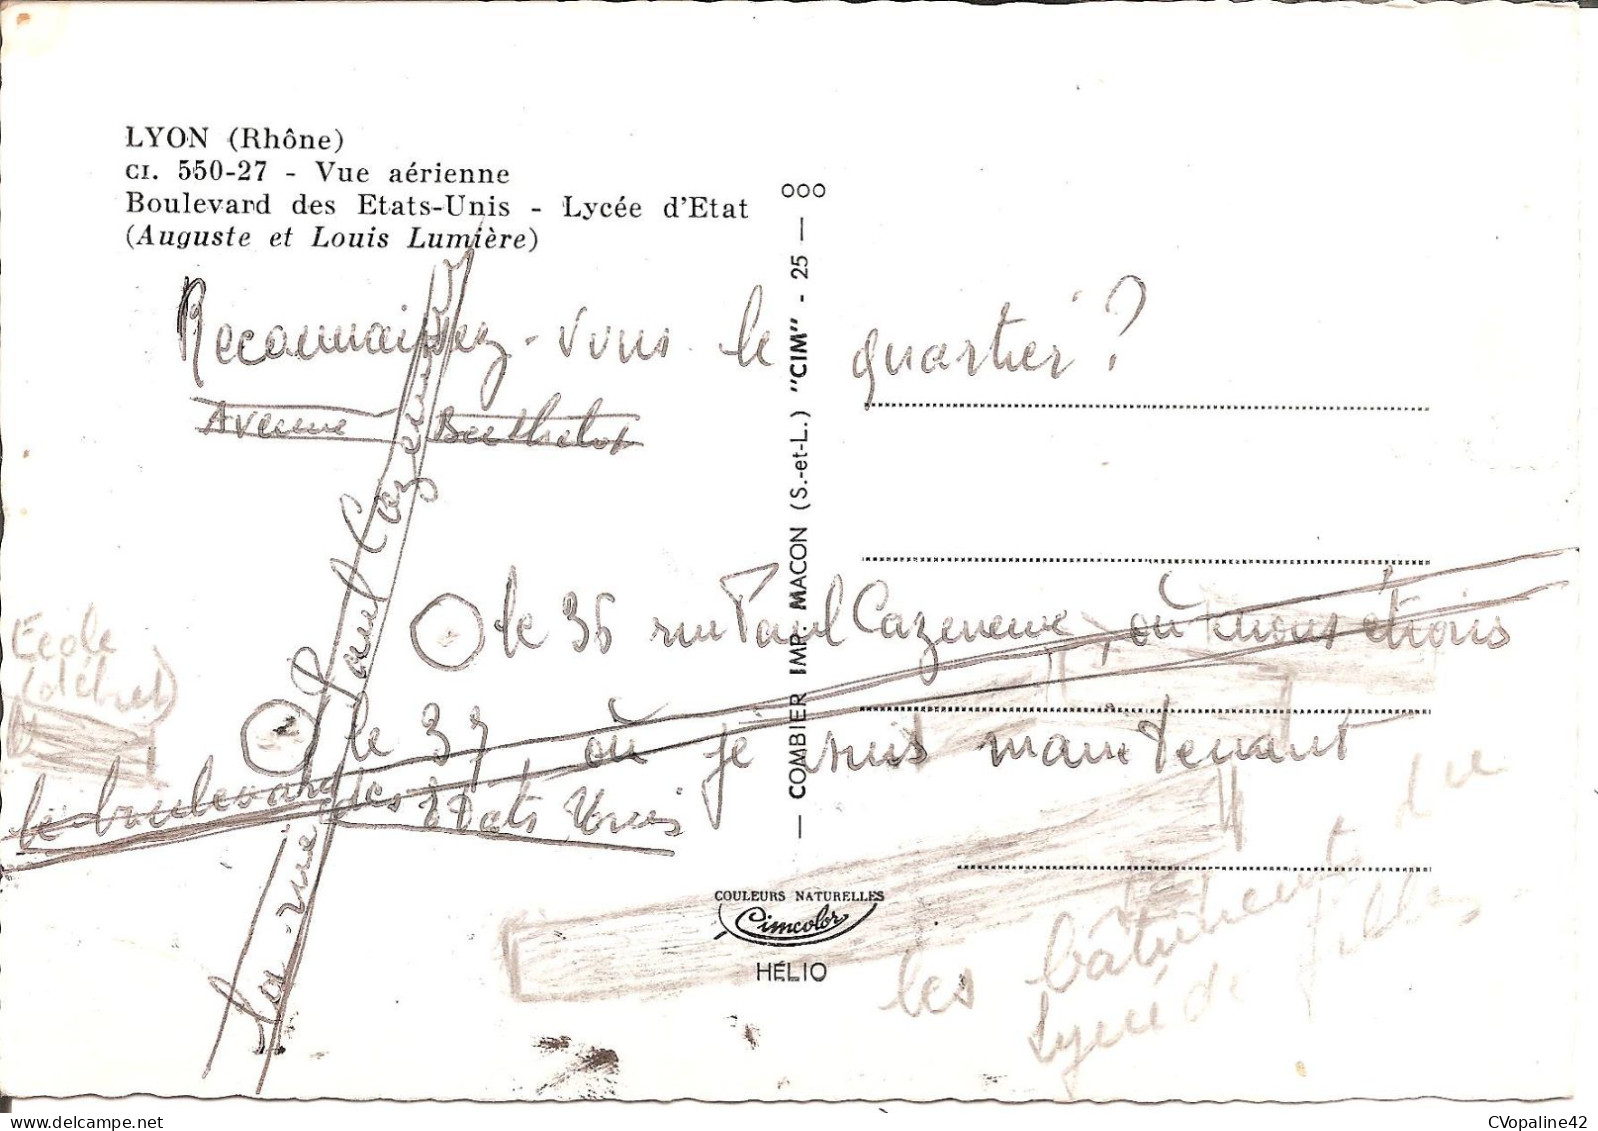 LYON (Rhône)
CI. 550-27 - Vue aérienne
Boulevard des Etats-Unis - Lycée d'Etat
(Auguste et Louis Lumière)
Reconnaissez-vous le quartier ?
Avenue Berthelot
la rue Paul Cazeneuve
le 36 rue Paul Cazeneuve, où nous étions
Ecole
le 37 où je suis maintenant
le boulevard des Etats Unis
les bâtiments du
Lycée de filles
OOO
COMBIER IMP. MACON (S.-et-L.) "CIM" - 25 —
COULEURS NATURELLES
Cimcolor
HÉLIO
CVopaline42